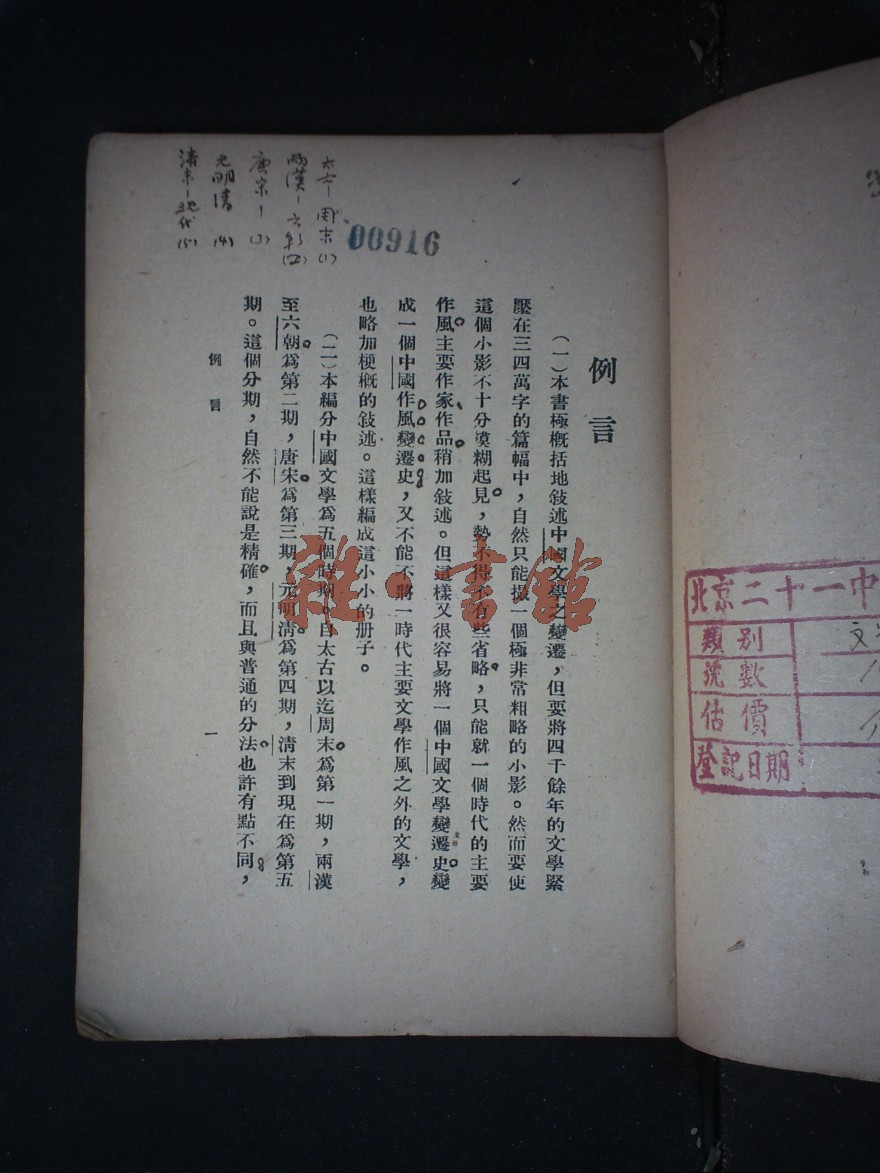 例言
（一）本書極概括地敍述中國文學之變遷，但要將四千餘年的文學緊
壓在三四萬字的篇幅中，自然只能攝一個極非常粗略的小影。然而要使
這個小影不十分糢糊起見，勢不得不有些省略，只能就一個時代的主要
作風主要作家作品稍加敍述。但這樣又很容易將一個中國文學變遷史變
成一個中國作風變遷史，又不能不將一時代主要文學作風之外的文學，
也略加梗概的敍述。這樣編成這小小的册子。
（二）本編分中國文學爲五個時期。自太古以迄周末爲第一期，兩漢
至六朝爲第二期，唐宋爲第三期，元明清爲第四期，清末到現在爲第五
期。這個分期，自然不能說是精確，而且與普通的分法也許有點不同，
例言
一
00916
太古-周末(1)
兩漢-六朝(2)
唐宋-(3)
元明清(4)
清末-現代(5)
雜·書館
北京二十一中
類別
號數
估價
登記日期